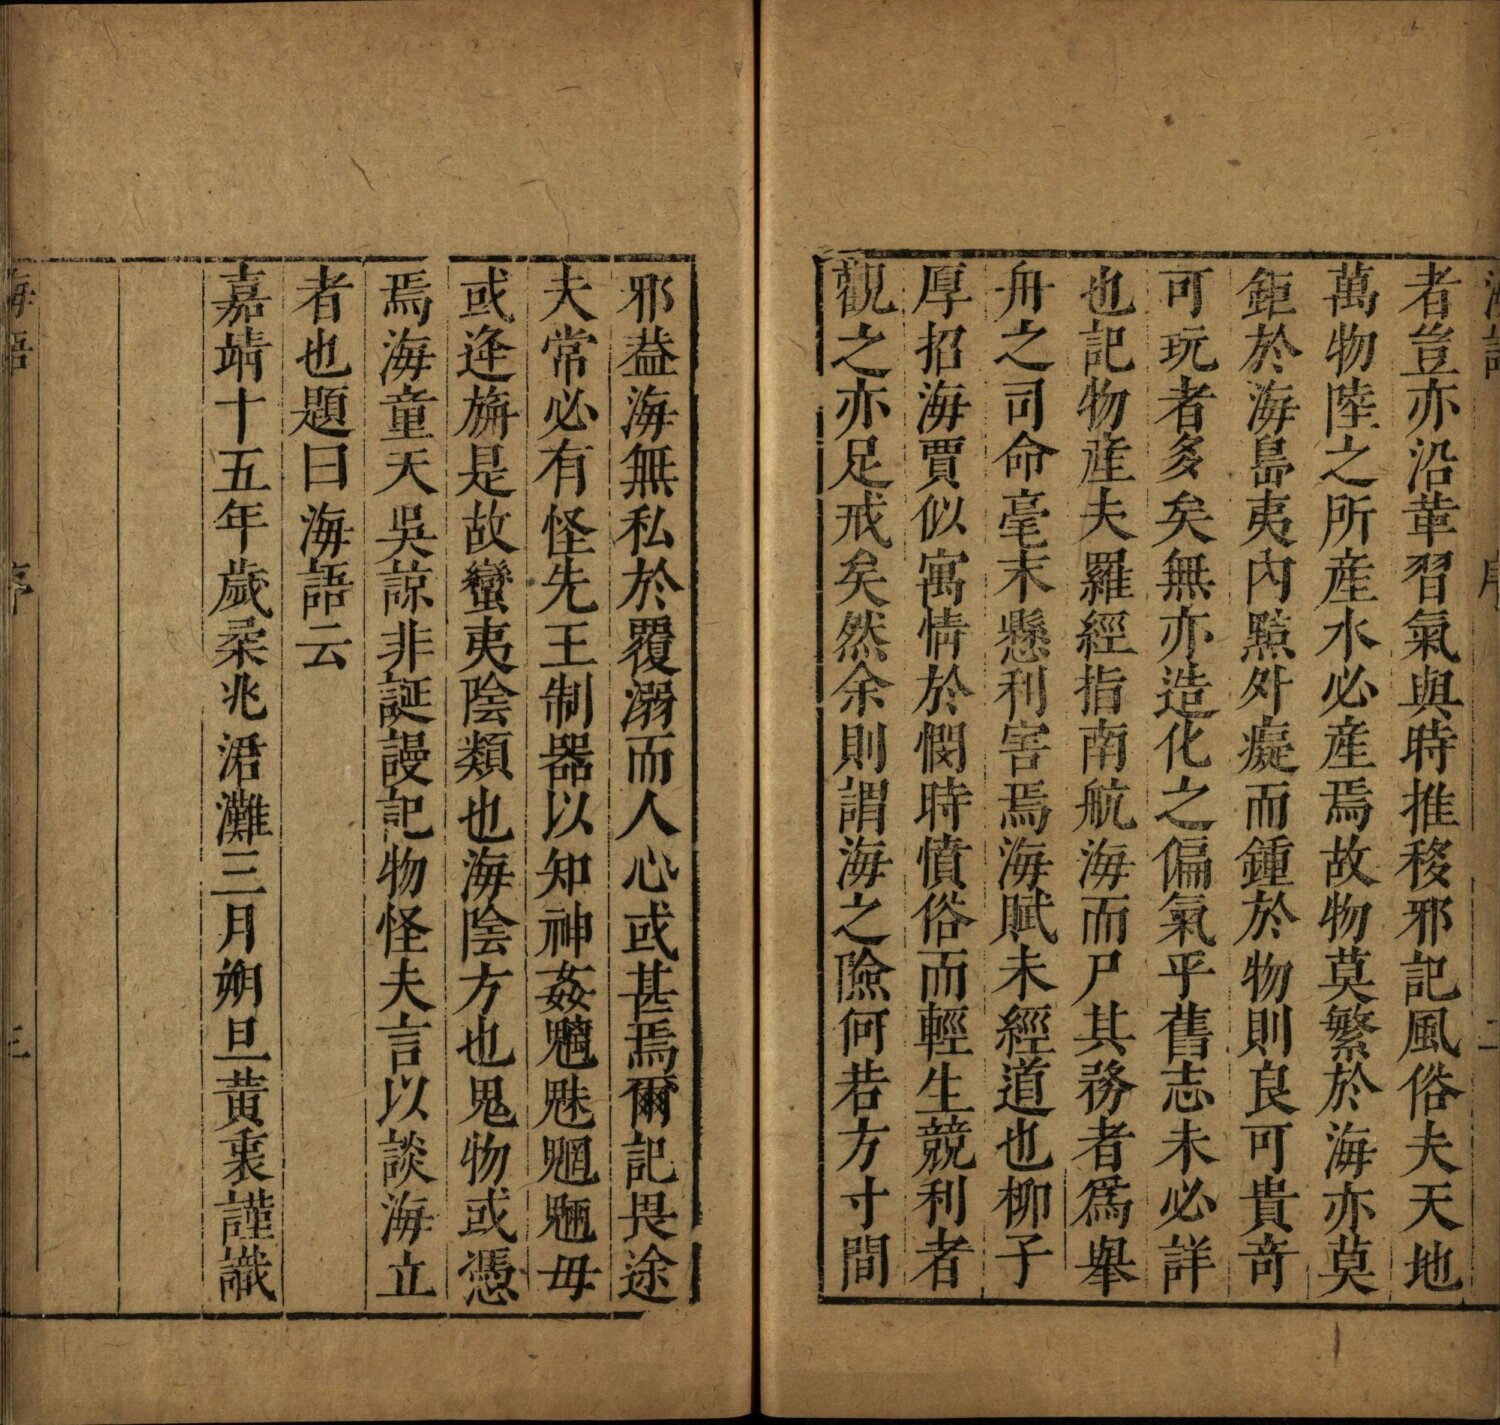 者豈亦沿革習氣與時推移邪記風俗夫天地
萬物陸之所産水必産焉故物莫繁於海亦莫
鉅於海島夷內黠外癡而鍾於物則良可貴奇
可玩者多矣無亦造化之偏氣乎舊志未必詳
也記物産夫羅經指南航海而尸其務者爲舉
舟之司命毫末懸利害焉海賦未經道也柳子
厚招海賈似寓情於憫時憤俗而輕生競利者
觀之亦足戒矣然余則謂海之險何若方寸間
邪葢海無私於覆溺而人心或甚焉爾記畏途
夫常必有怪先王制器以知神姦魑魅魍魎毋
或逢旃是故蠻夷陰類也海陰方也鬼物或憑
焉海童天吳諒非誕謾記物怪夫言以談海立
者也題曰海語云
嘉靖十五年歲柔兆涒灘三月朔旦黃衷謹識
海語
序
三